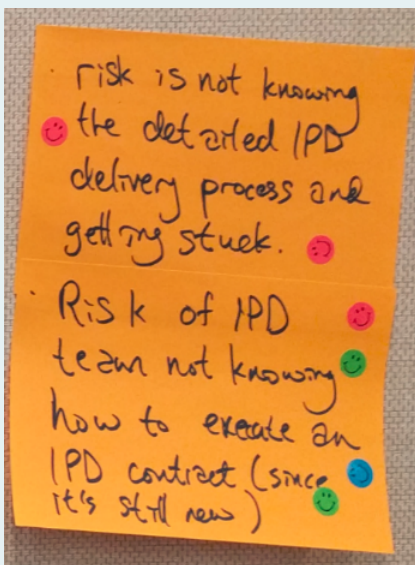 · risk is not knowing
the detailed IPD
delivery process and
getting stuck.
· Risk of IPD
team not knowing
how to execute an
IPD contract (since
it's still new)